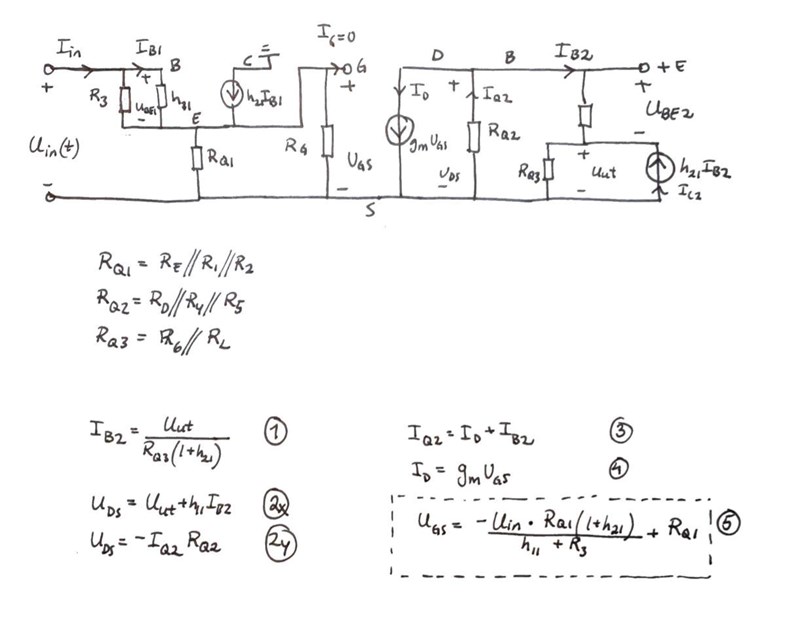 I_in I_B1 B C I_G=0 G D B I_B2 + E
+ R_3 + U_BE1 - h_11 h_21 I_B1 + I_D + I_Q2 + U_BE2 -
E
U_in(t) R_Q1 R_G U_GS g_m U_GS U_DS R_Q2 R_Q3 + U_ut - h_21 I_B2
- - - I_C2
S
R_Q1 = R_E // R_1 // R_2
R_Q2 = R_D // R_4 // R_5
R_Q3 = R_6 // R_L
I_B2 = U_ut / R_Q3 (1+h_21) ①
U_DS = U_ut + h_11 I_B2 (2x)
U_DS = -I_Q2 R_Q2 (2y)
I_Q2 = I_D + I_B2 ③
I_D = g_m U_GS ④
U_GS = -U_in · R_Q1 (1+h_21) / h_11 + R_3 + R_Q1 ⑤